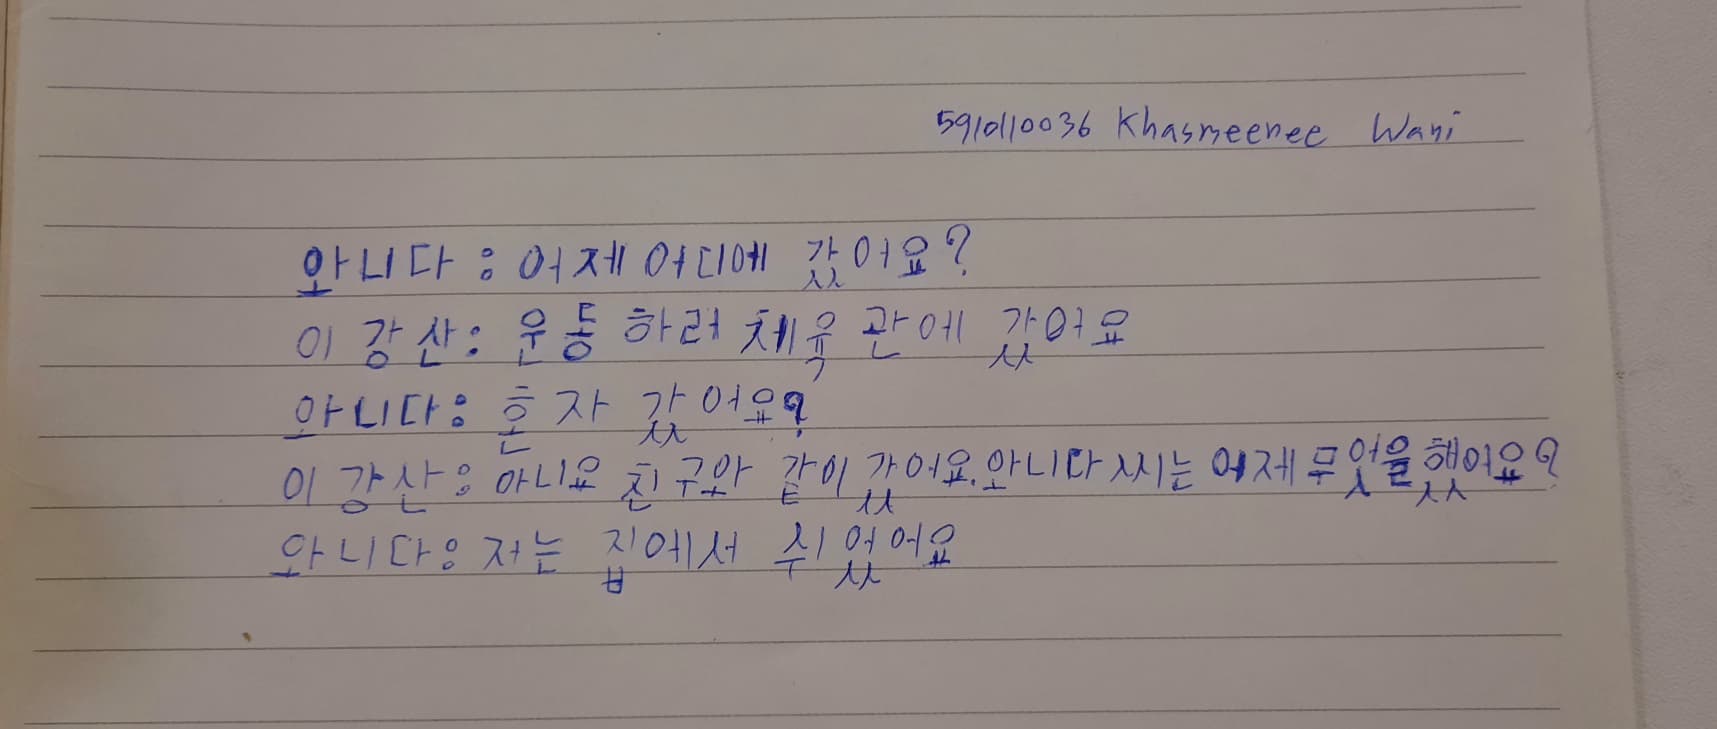 5910110036 Khasmeenee Wani
와니다 : 어제 어디에 갔어요?
이 강산 : 운동 하러 체육 관에 갔어요
와니다 : 혼자 갔어요?
이 강산 : 아니요 친구와 같이 갔어요. 와니다 씨는 어제 무엇을 했어요?
와니다 : 저는 집에서 쉬었어요